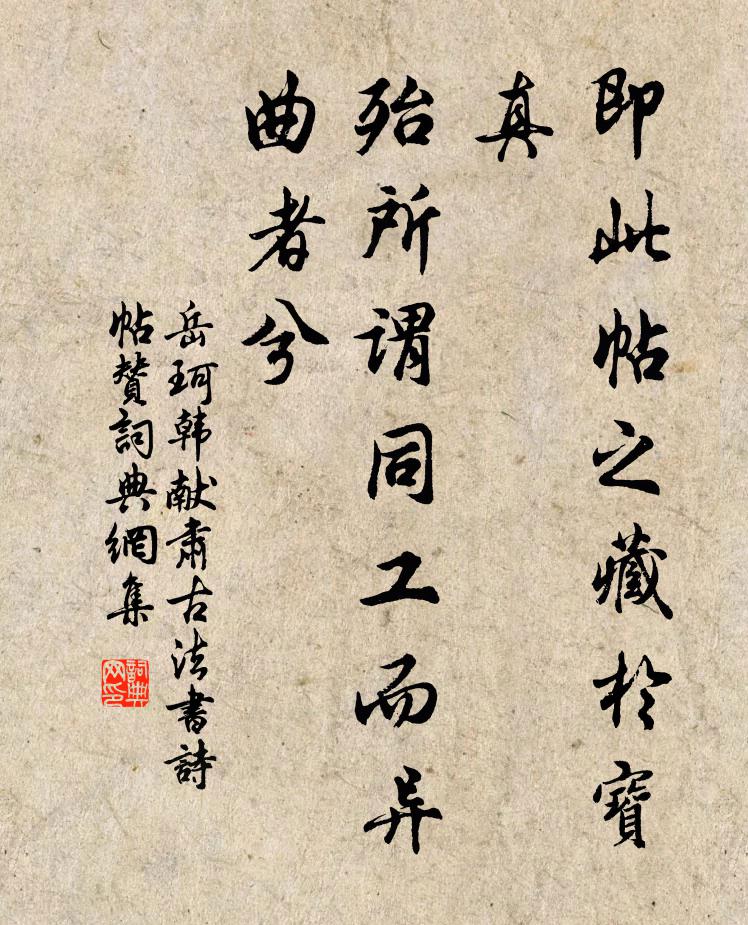 即此帖之藏於寶
真
殆所謂同工而异
曲者兮
岳珂韩献肅古法書詩
帖賛詞典網集
詞典
网印